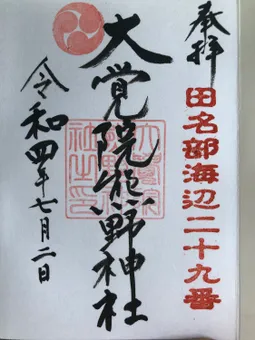 奉拝
田名部海辺二十九番
大覚院熊野神社
令和四年七月二日